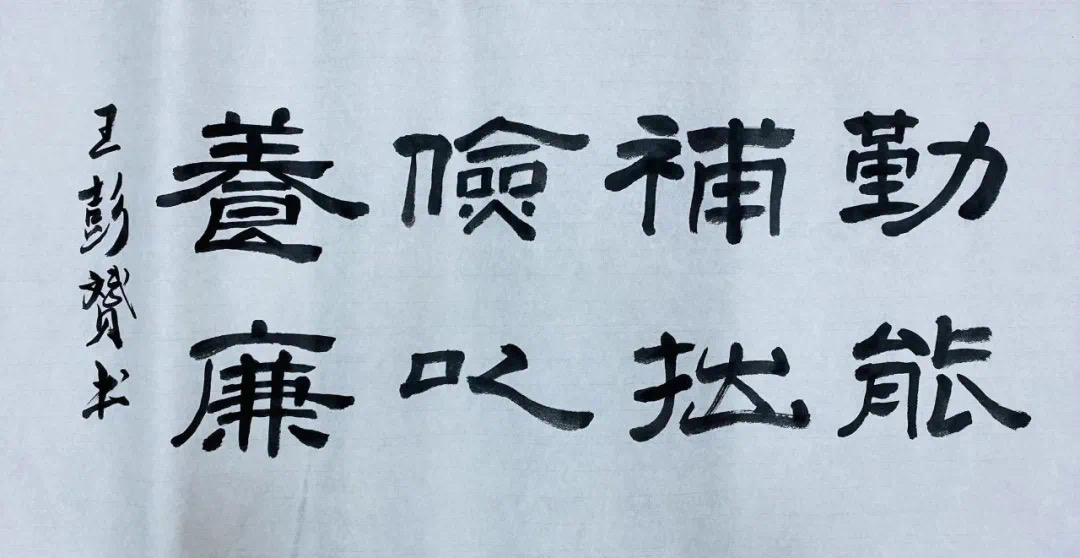 勤能
補拙
儉以
養廉
王彭赟书